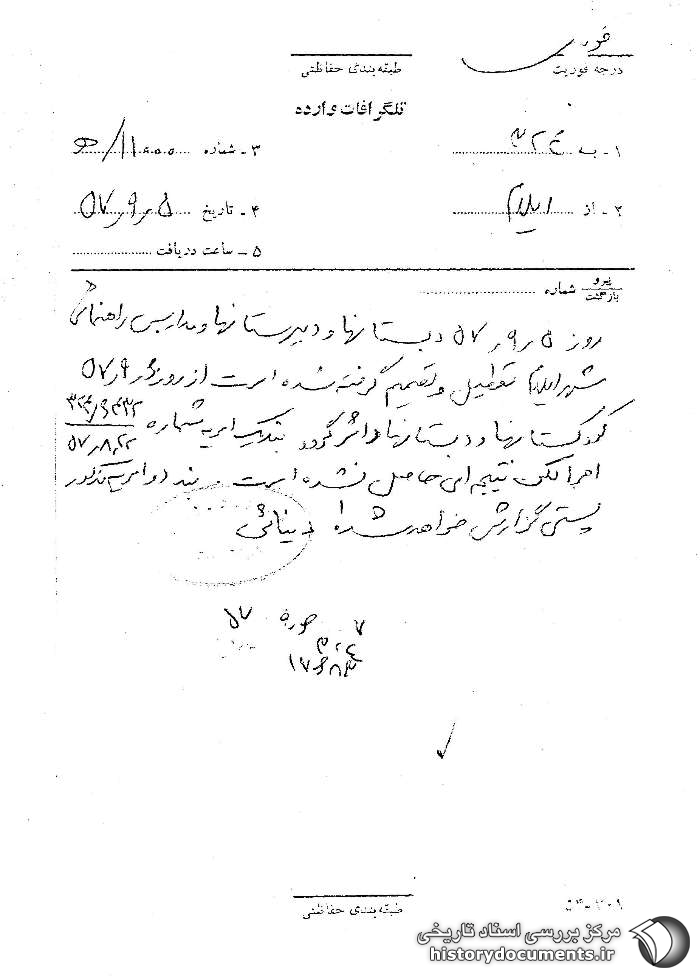 فوری
درجه فوریت
طبقه بندی حفاظتی
تلگرافات وارده
۱ - به ۳۲۴
۳ - شماره ۱۱۰۰۰/ه
۲ - از ایلام
۴ - تاریخ ۵ر۹ر۵۷
۵ - ساعت دریافت
پیرو
بازگشت
شماره
روز ۵ر۹ر۵۷ دبستانها و دبیرستانها و مدارس راهنمائی
شهر ایلام تعطیل و تصمیم گرفته شده است از روز ۶ر۹ر۵۷
کودکستانها و دبستانها دائر گردد بند یک امریه شماره
۵۷٫۸٫۲۲
اجرا لکن نتیجه‌ای حاصل نشده است. بند ۲ امریه مذکور
پستی گزارش خواهد شد
۵۷
طبقه بندی حفاظتی
۳۰۹ - ۵۴
مرکز بررسی اسناد تاریخی
historydocuments.ir